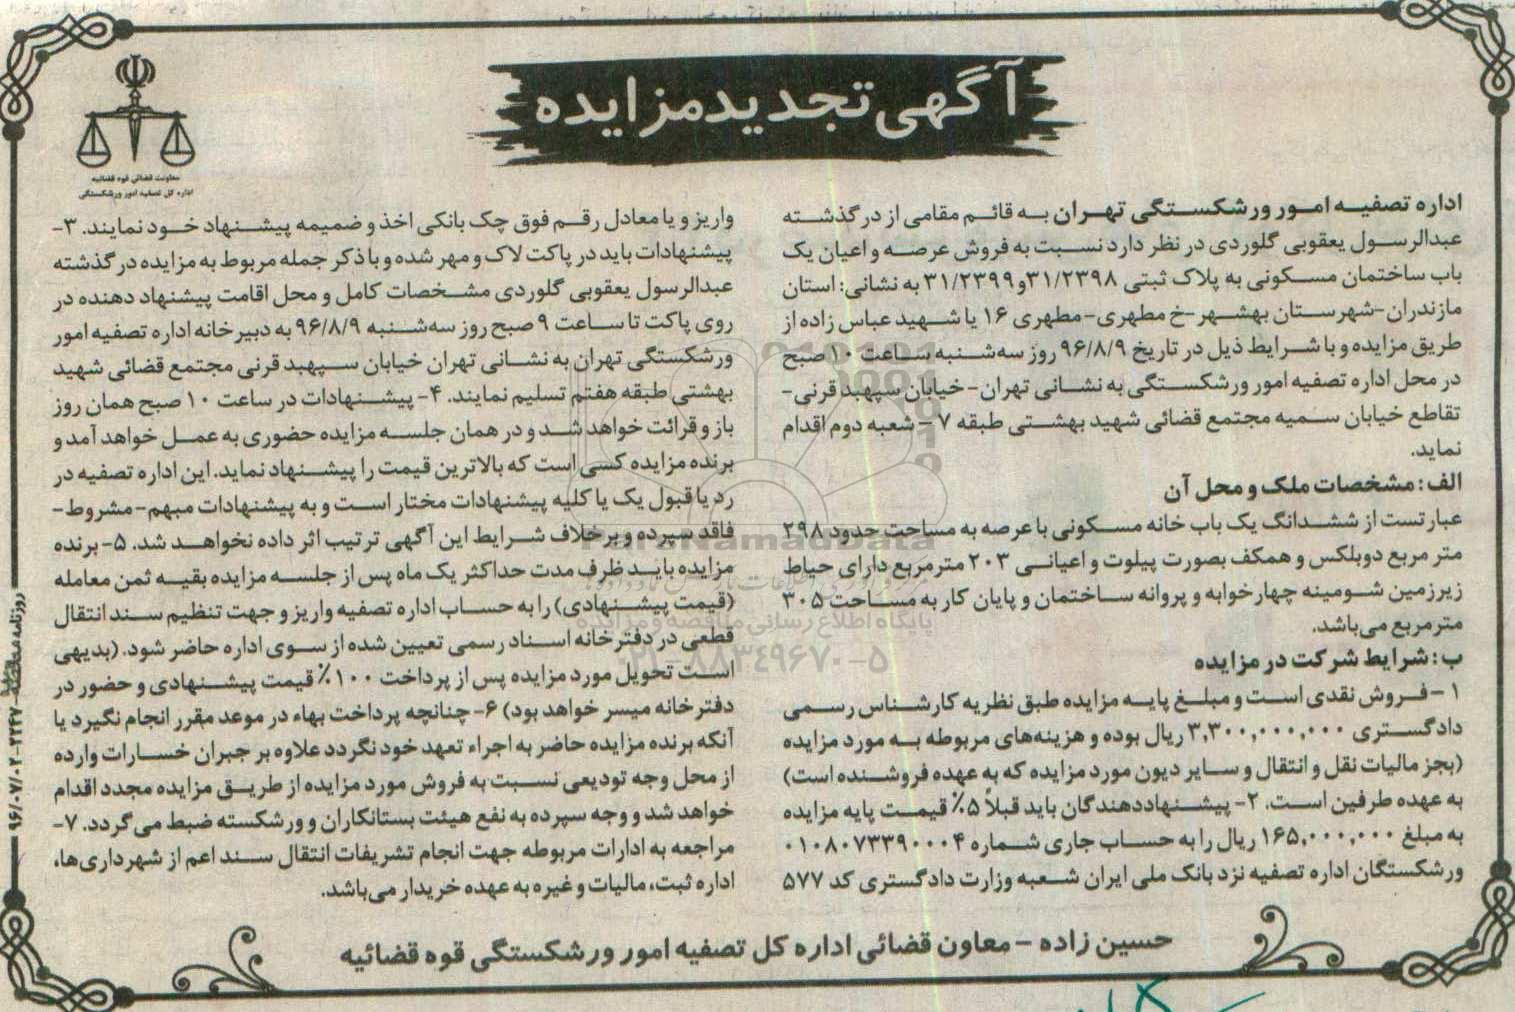 آگهی تجدید مزایده
معاونت قضائی قوه قضائیه
اداره کل تصفیه امور ورشکستگی
اداره تصفیه امور ورشکستگی تهران به قائم مقامی از درگذشته
عبدالرسول یعقوبی گلوردی در نظر دارد نسبت به فروش عرصه و اعیان یک
باب ساختمان مسکونی به پلاک ثبتی ۳۱/۲۳۹۸و۳۱/۲۳۹۹ به نشانی: استان
مازندران-شهرستان بهشهر-خ مطهری-مطهری ۱۶ یا شهید عباس زاده از
طریق مزایده و با شرایط ذیل در تاریخ ۹۶/۸/۹ روز سه‌شنبه ساعت ۱۰ صبح
در محل اداره تصفیه امور ورشکستگی به نشانی تهران- خیابان سپهبد قرنی-
تقاطع خیابان سمیه مجتمع قضائی شهید بهشتی طبقه ۷ - شعبه دوم اقدام
نماید.
الف: مشخصات ملک و محل آن
عبارتست از ششدانگ یک باب خانه مسکونی با عرصه به مساحت حدود ۲۹۸
متر مربع دوبلکس و همکف بصورت پیلوت و اعیانی ۲۰۳ مترمربع دارای حیاط
زیرزمین شومینه چهارخوابه و پروانه ساختمان و پایان کار به مساحت ۳۰۵
مترمربع می‌باشد.
ب: شرایط شرکت در مزایده
۱ - فروش نقدی است و مبلغ پایه مزایده طبق نظریه کارشناس رسمی
دادگستری ۳,۳۰۰,۰۰۰,۰۰۰ ریال بوده و هزینه‌های مربوطه به مورد مزایده
(بجز مالیات نقل و انتقال و سایر دیون مورد مزایده که به عهده فروشنده است)
به عهده طرفین است. ۲- پیشنهاددهندگان باید قبلاً ۵٪ قیمت پایه مزایده
به مبلغ ۱۶۵,۰۰۰,۰۰۰ ریال را به حساب جاری شماره ۰۱۰۸۰۷۳۳۹۰۰۰۴
ورشکستگان اداره تصفیه نزد بانک ملی ایران شعبه وزارت دادگستری کد ۵۷۷
واریز و یا معادل رقم فوق چک بانکی اخذ و ضمیمه پیشنهاد خود نمایند. ۳-
پیشنهادات باید در پاکت لاک و مهر شده و با ذکر جمله مربوط به مزایده درگذشته
عبدالرسول یعقوبی گلوردی مشخصات کامل و محل اقامت پیشنهاد دهنده در
روی پاکت تا ساعت ۹ صبح روز سه‌شنبه ۹۶/۸/۹ به دبیرخانه اداره تصفیه امور
ورشکستگی تهران به نشانی تهران خیابان سپهبد قرنی مجتمع قضائی شهید
بهشتی طبقه هفتم تسلیم نمایند. ۴- پیشنهادات در ساعت ۱۰ صبح همان روز
باز و قرائت خواهد شد و در همان جلسه مزایده حضوری به عمل خواهد آمد و
برنده مزایده کسی است که بالاترین قیمت را پیشنهاد نماید. این اداره تصفیه در
رد یا قبول یک یا کلیه پیشنهادات مختار است و به پیشنهادات مبهم-مشروط-
فاقد سپرده و برخلاف شرایط این آگهی ترتیب اثر داده نخواهد شد. ۵- برنده
مزایده باید ظرف مدت حداکثر یک ماه پس از جلسه مزایده بقیه ثمن معامله
(قیمت پیشنهادی) را به حساب اداره تصفیه واریز و جهت تنظیم سند انتقال
قطعی در دفترخانه اسناد رسمی تعیین شده از سوی اداره حاضر شود. (بدیهی
است تحویل مورد مزایده پس از پرداخت ۱۰۰٪ قیمت پیشنهادی و حضور در
دفترخانه میسر خواهد بود) ۶- چنانچه پرداخت بهاء در موعد مقرر انجام نگیرد یا
آنکه برنده مزایده حاضر به اجراء تعهد خود نگردد علاوه بر جبران خسارات وارده
از محل وجه تودیعی نسبت به فروش مورد مزایده از طریق مزایده مجدد اقدام
خواهد شد و وجه سپرده به نفع هیئت بستانکاران و ورشکسته ضبط می‌گردد. ۷-
مراجعه به ادارات مربوطه جهت انجام تشریفات انتقال سند اعم از شهرداری‌ها،
اداره ثبت، مالیات و غیره به عهده خریدار می‌باشد.
حسین زاده - معاون قضائی اداره کل تصفیه امور ورشکستگی قوه قضائیه
ParsNamadData
پایگاه اطلاع رسانی مناقصه و مزایده
۰۲۱-۸۸۳۴۹۶۷۰-۵